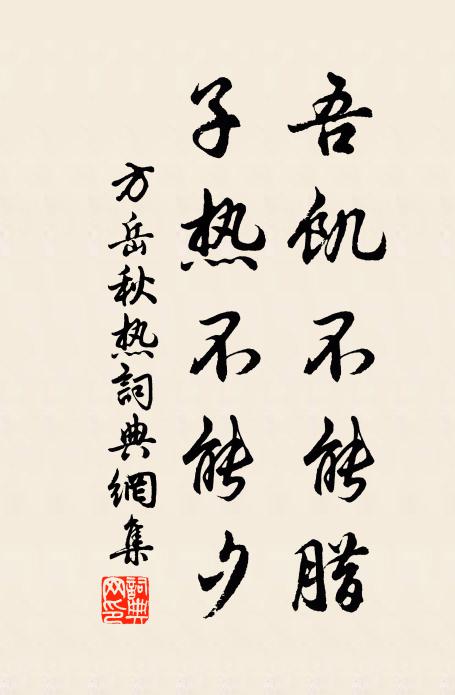 吾飢不能腊
子热不能夕
方岳秋热詞典網集
詞典网印